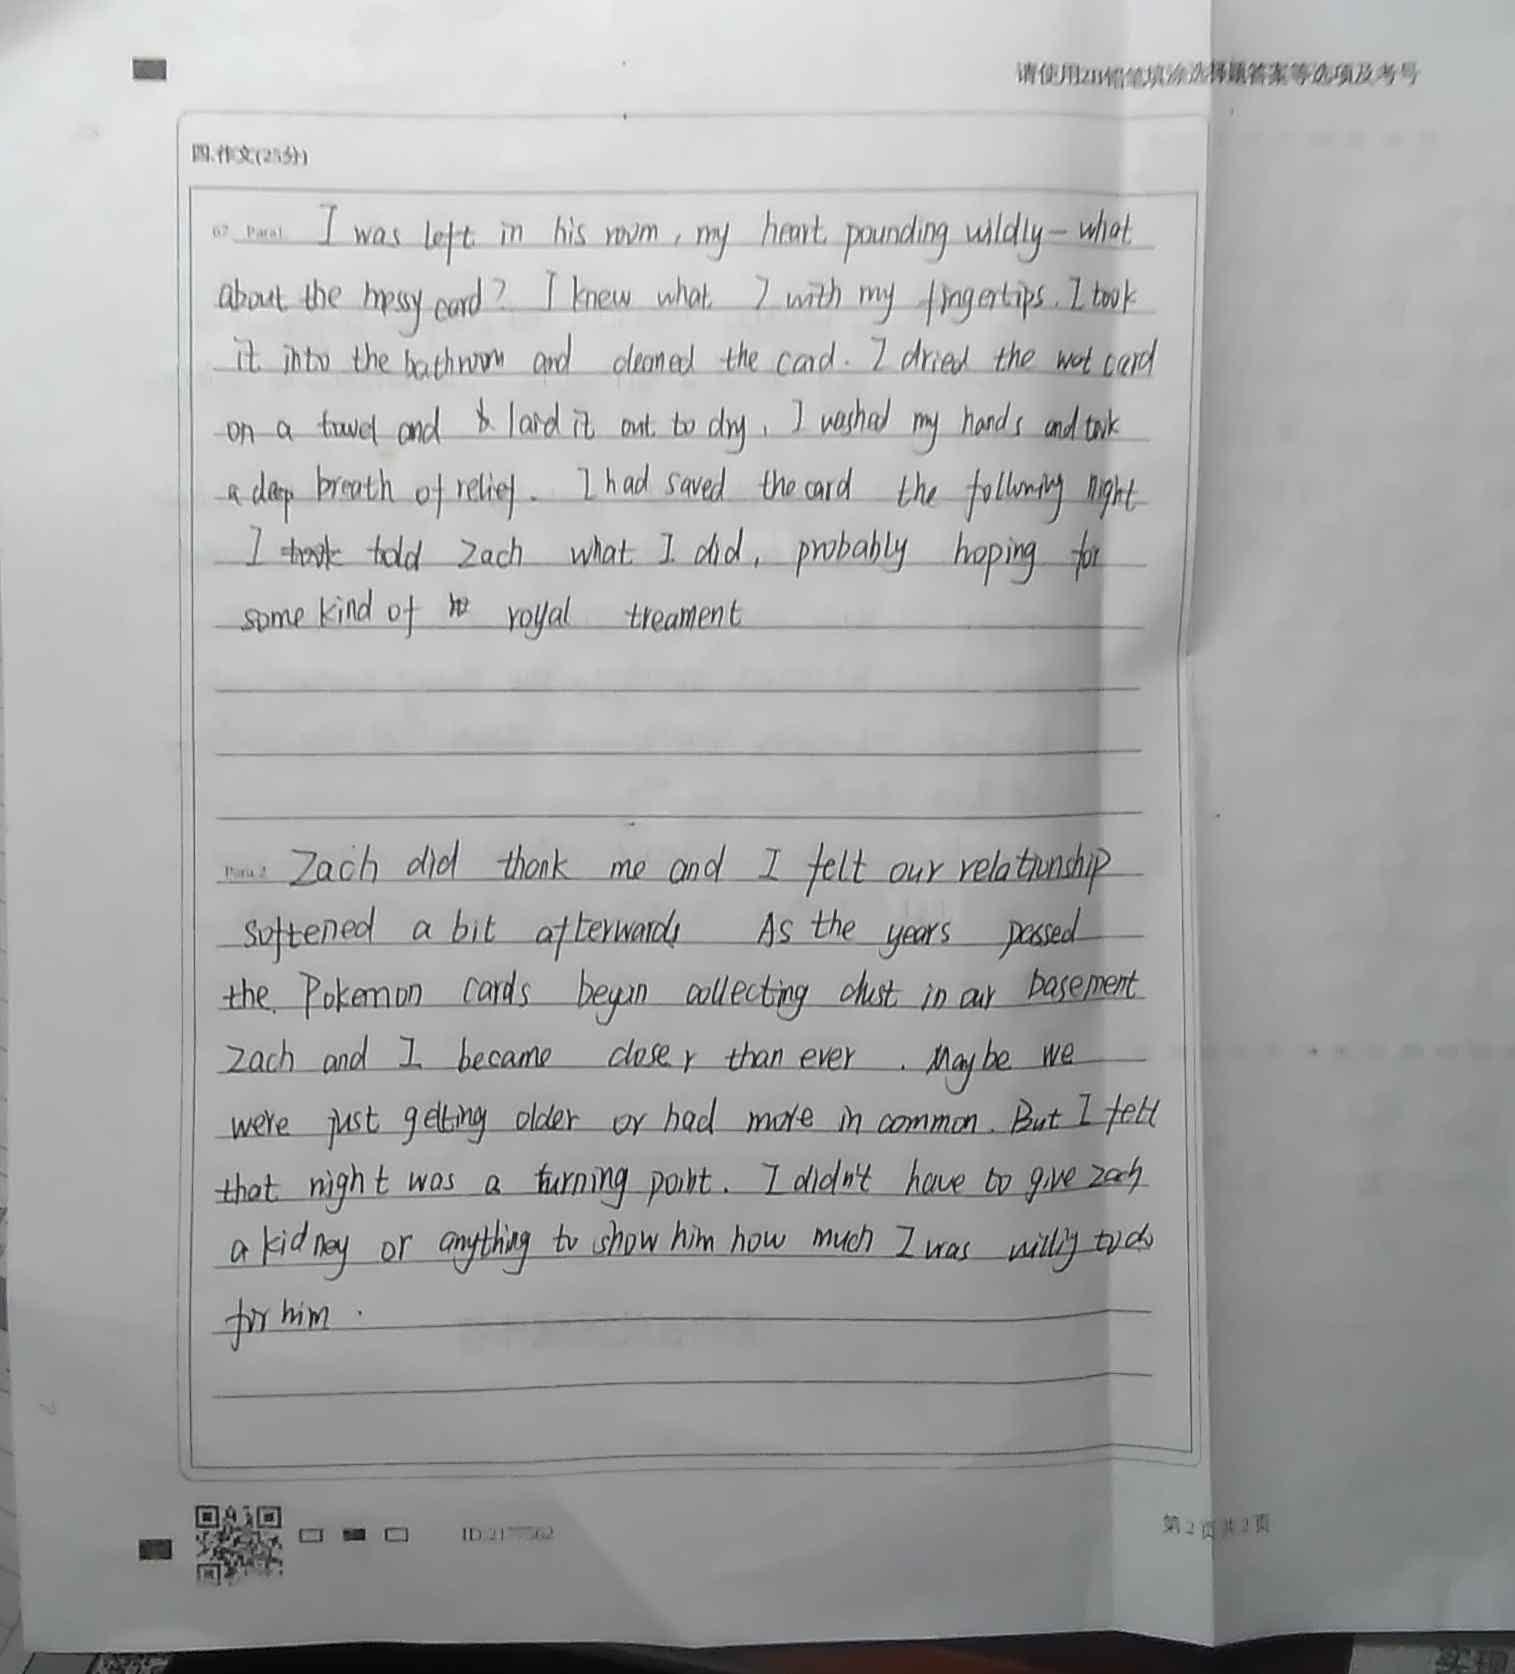 请使用2B铅笔填涂选择题答案等选项及考号
四.作文(25分)
67. Para1 I was left in his room, my heart pounding wildly - what
about the messy card? I knew what I with my fingertips. I took
it into the bathroom and cleaned the card. I dried the wet card
on a towel and laid it out to dry, I washed my hands and took
a deep breath of relief. I had saved the card the following night
I took told Zach what I did, probably hoping for
some kind of royal treament
Para 2 Zach did thank me and I felt our relationship
softened a bit afterwards As the years passed
the Pokemon cards began collecting dust in our basement
Zach and I became closer than ever. Maybe we
were just getting older or had more in common. But I felt
that night was a turning point. I didn't have to give Zach
a kidney or anything to show him how much I was willig to do
for him.
第2页共2页